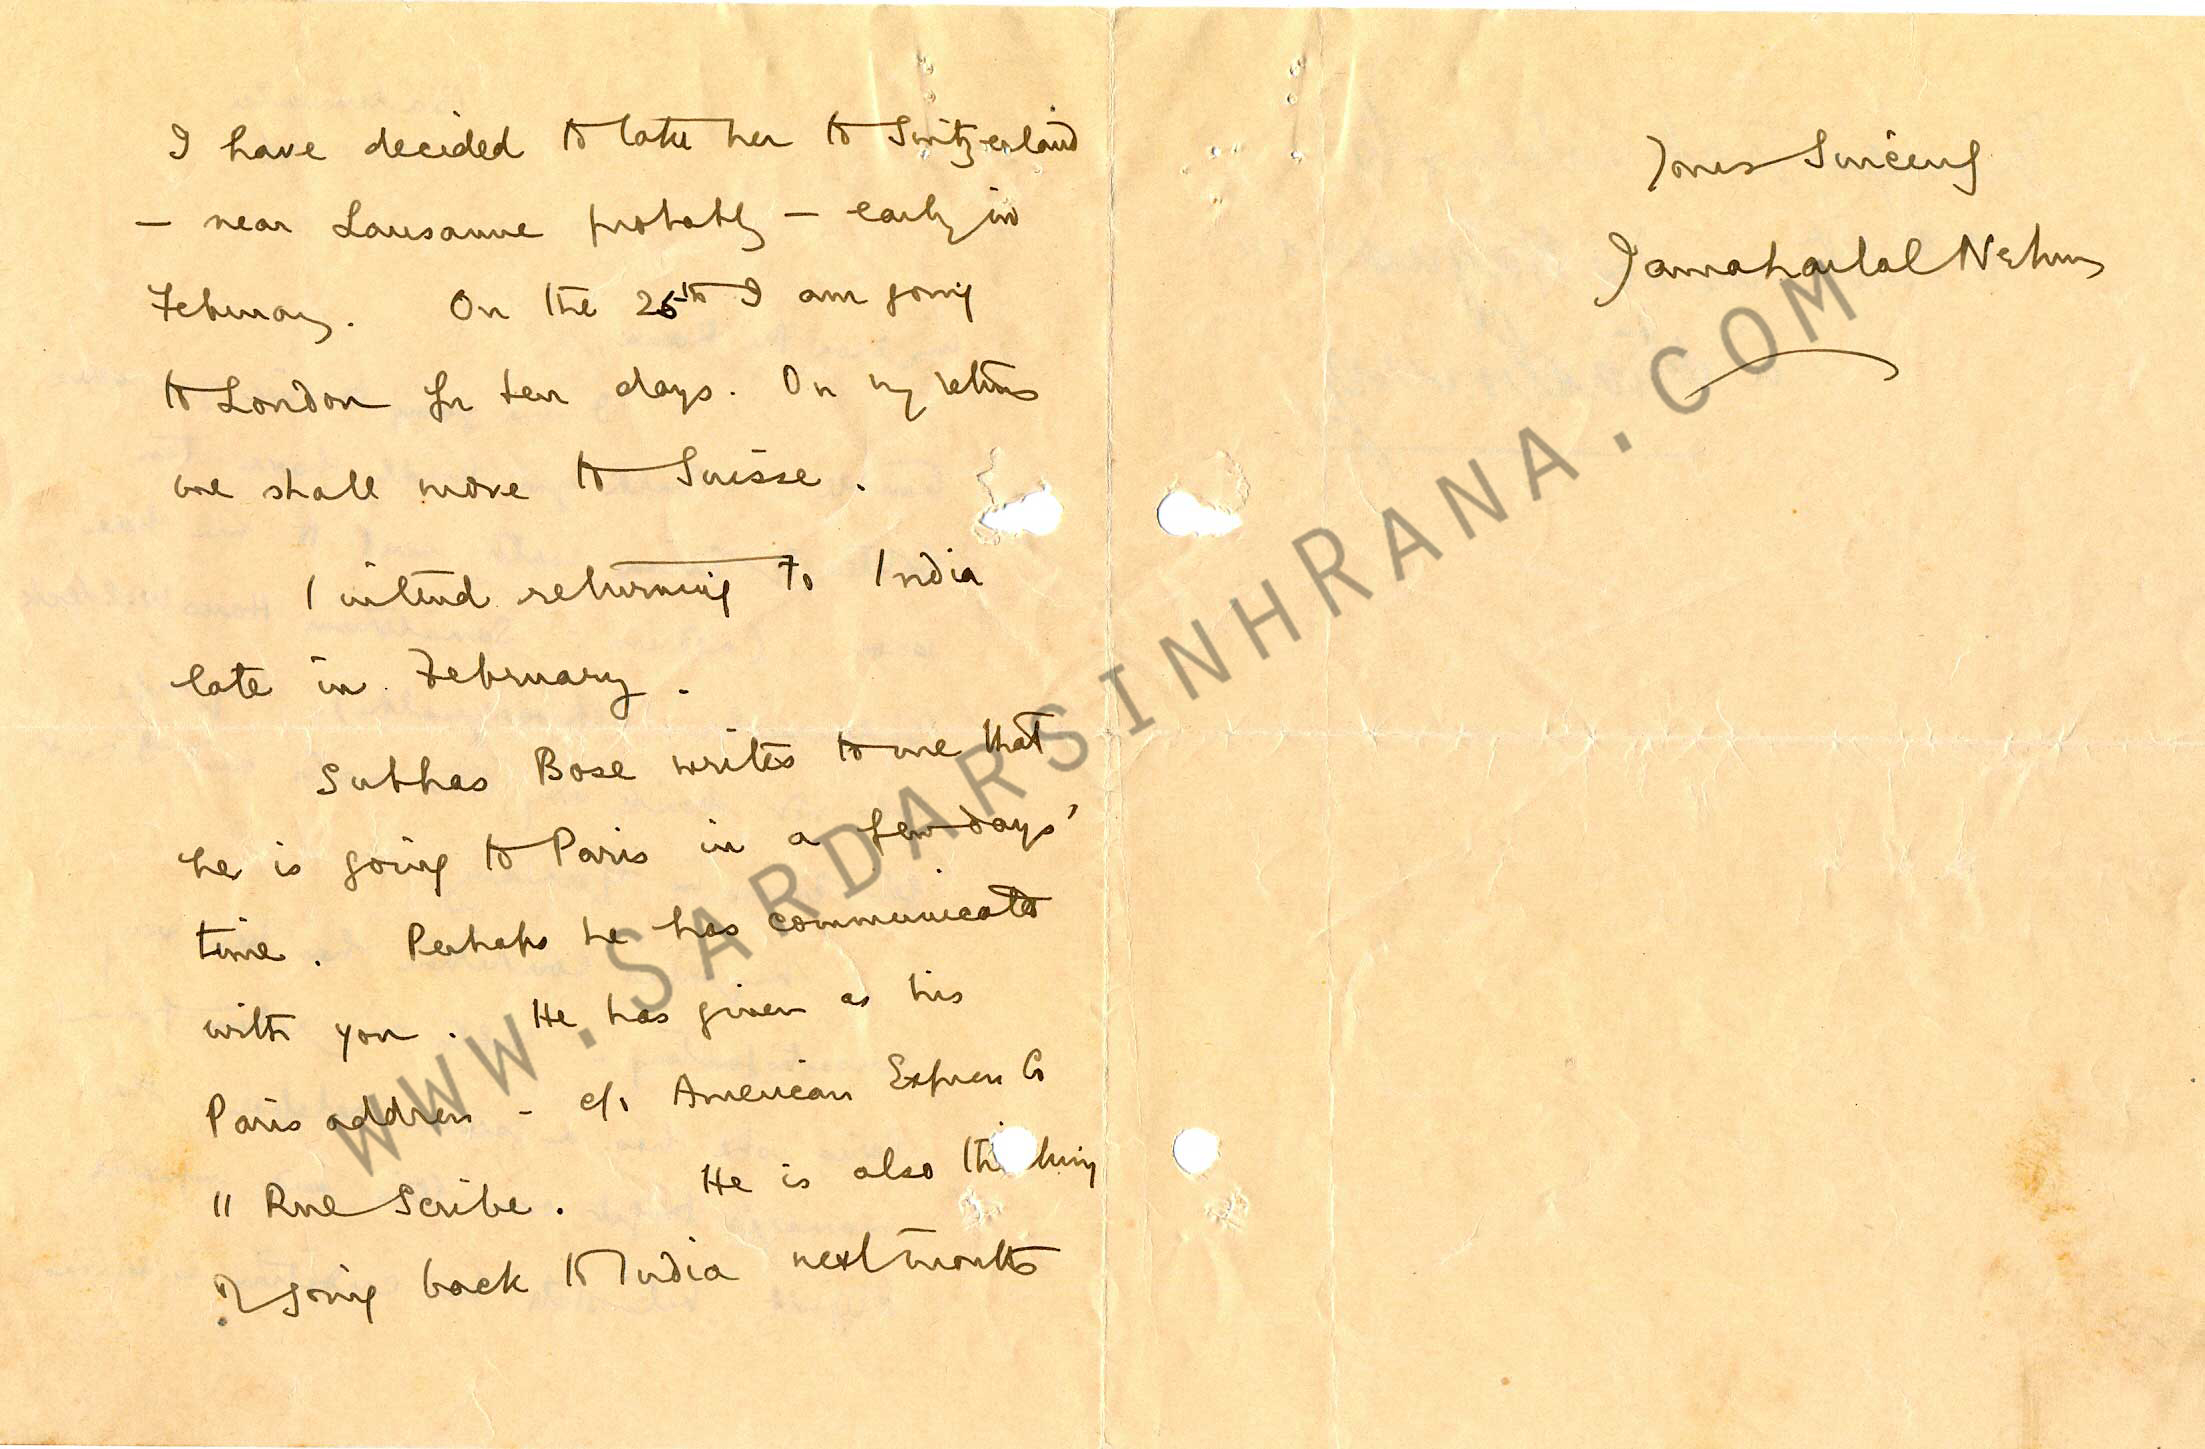 I have decided to take her to Switzerland
— near Lausanne probably — early in
February. On the 25th I am going
to London for ten days. On my return
we shall move to Suisse.
I intend returning to India
late in February.
Subhas Bose writes to me that
he is going to Paris in a few days'
time. Perhaps he has communicated
with you. He has given as his
Paris address - c/o American Express Co
11 Rue Scribe. He is also thinking
of going back to India next month
Yours Sincerely
Jawaharlal Nehru
WWW.SARDARSINHRANA.COM